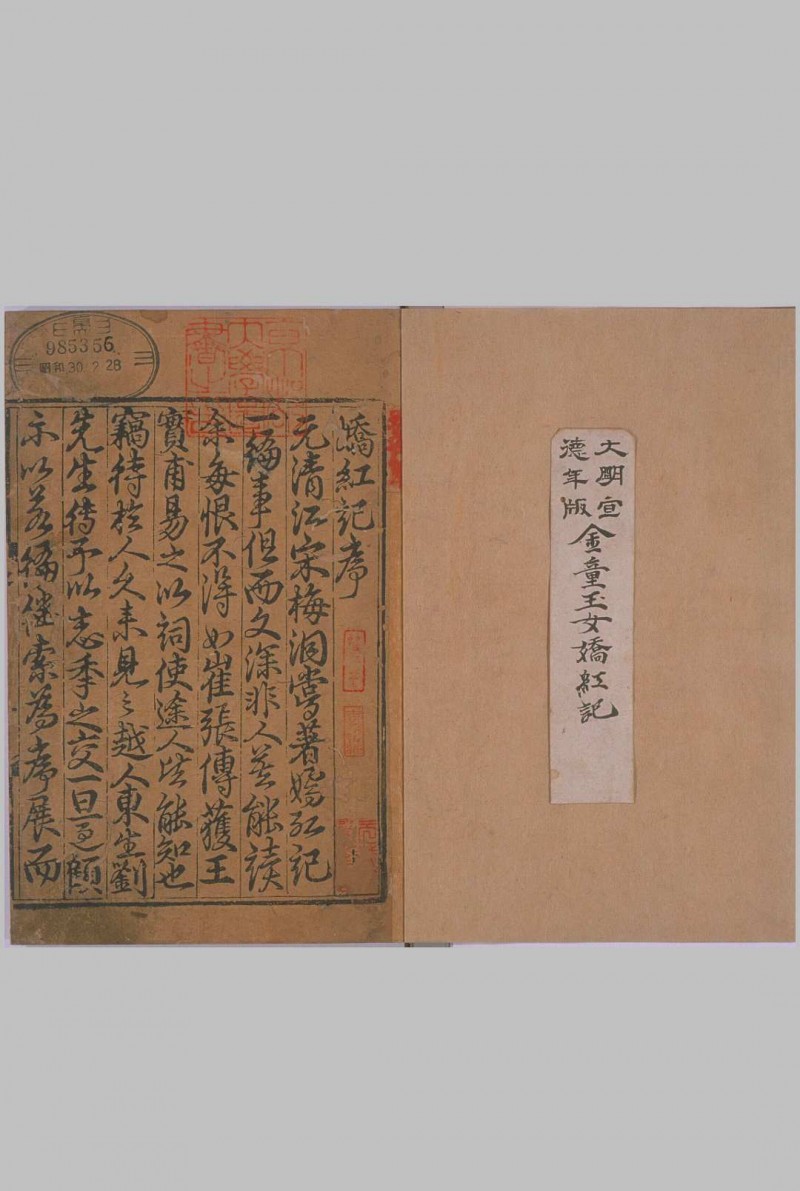 大明宣
德年版
金童玉女嬌紅記
985356
昭和30.2.28
嬌紅記序
元清江宋梅洞嘗著嬌紅記
一編事俱而文深非人莫能讀
余每恨不得如崔張傳獲王
實甫易之以詞使途人皆能知也
竊待於人久未見之越人東生劉
先生待予以忘年之交一旦過顧
示以若編繼索為序展而